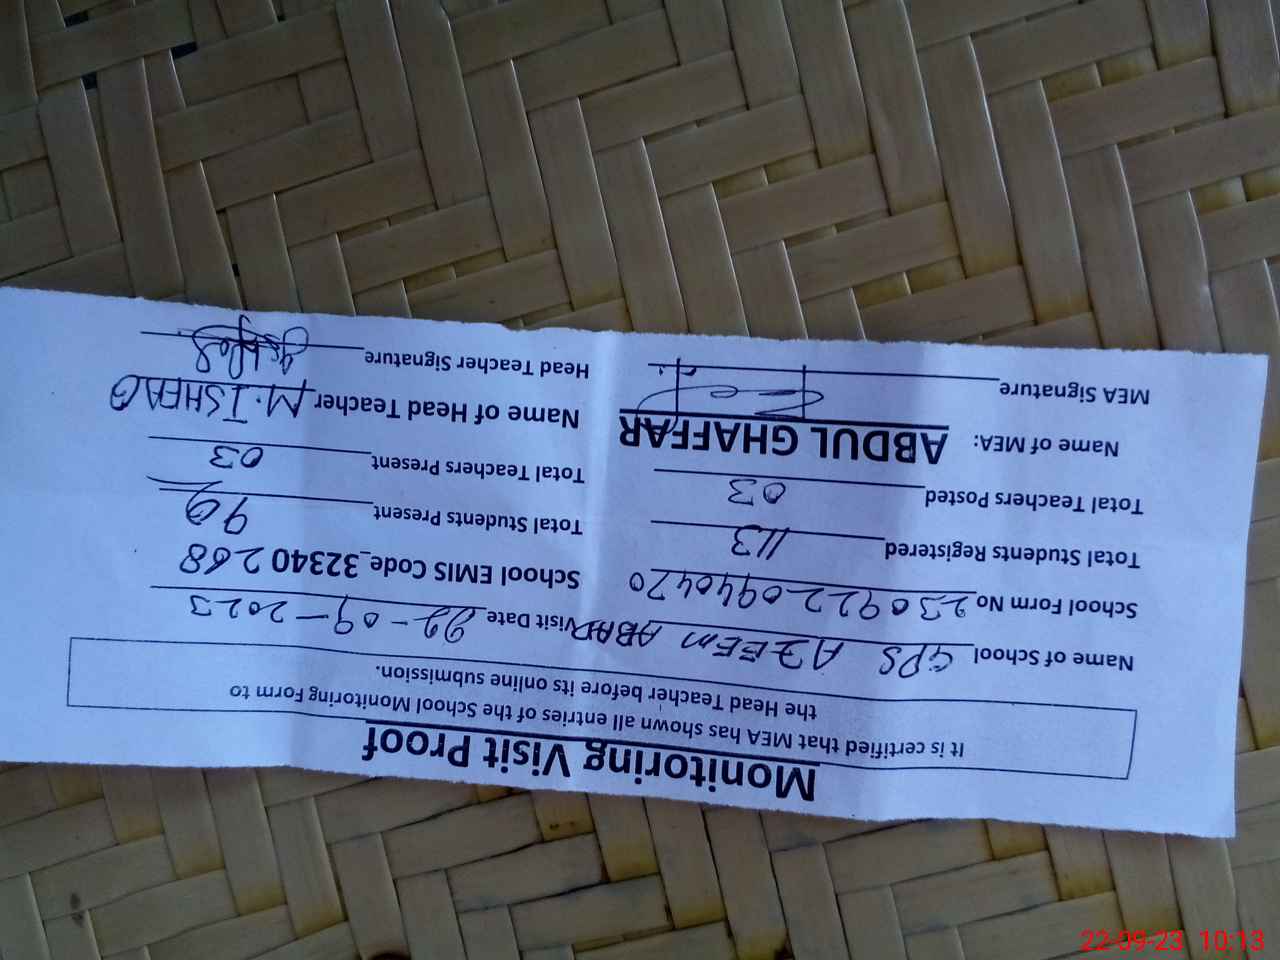 Monitoring Visit Proof
It is certified that MEA has shown all entries of the School Monitoring Form to
the Head Teacher before its online submission.
Name of School GPS AZEEM ABAD Visit Date 22-09-2023
School Form No 2309220940470 School EMIS Code_32340268
Total Students Registered 113 Total Students Present 90
Total Teachers Posted 03 Total Teachers Present 03
Name of MEA: ABDUL GHAFFAR Name of Head Teacher M.ISHFAQ
MEA Signature Head Teacher Signature
22-09-23 10:13